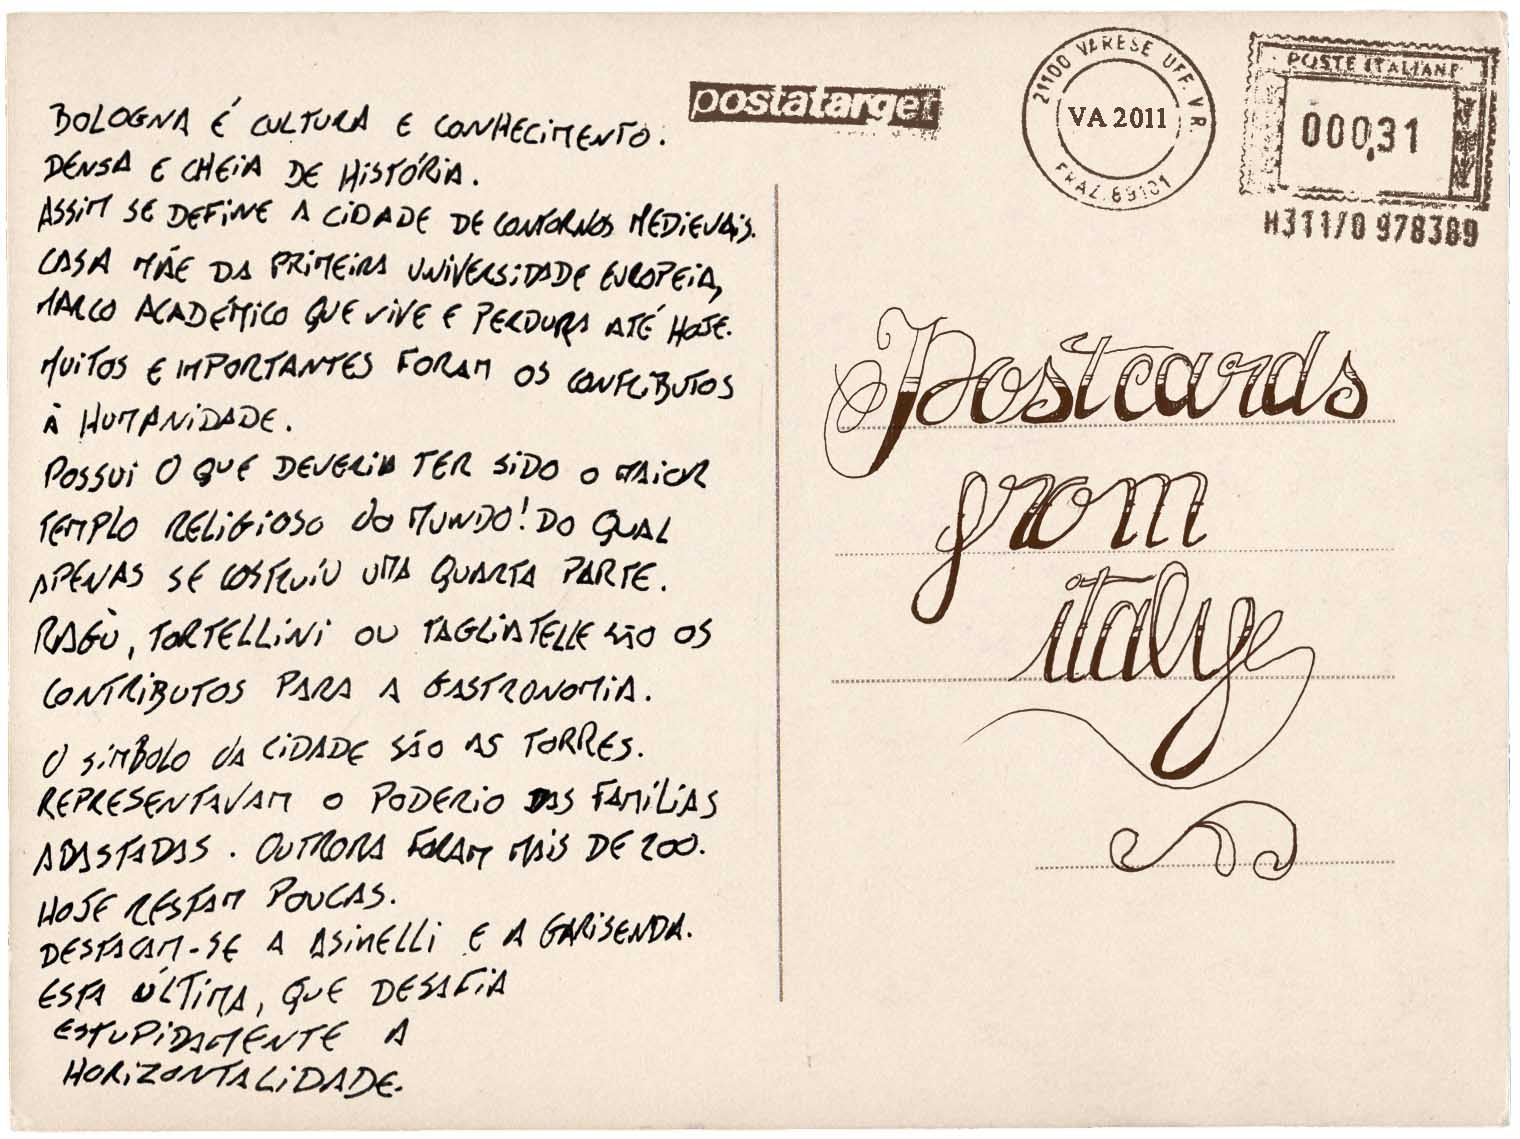 BOLOGNA É CULTURA E CONHECIMENTO.
DENSA E CHEIA DE HISTÓRIA.
ASSIM SE DEFINE A CIDADE DE CONTORNOS MEDIEVAIS.
CASA MÃE DA PRIMEIRA UNIVERSIDADE EUROPEIA,
MARCO ACADÉMICO QUE VIVE E PERDURA ATÉ HOJE.
MUITOS E IMPORTANTES FORAM OS CONTRIBUTOS
À HUMANIDADE.
POSSUI O QUE DEVERIA TER SIDO O MAIOR
TEMPLO RELIGIOSO DO MUNDO! DO QUAL
APENAS SE COSTRUIU UMA QUARTA PARTE.
RAGÙ, TORTELLINI OU TAGLIATELLE SÃO OS
CONTRIBUTOS PARA A GASTRONOMIA.
O SÍMBOLO DA CIDADE SÃO AS TORRES.
REPRESENTAVAM O PODERIO DAS FAMÍLIAS
ABASTADAS. OUTRORA FORAM MAIS DE 200.
HOJE RESTAM POUCAS.
DESTACAM-SE A ASINELLI E A GARISENDA.
ESTA ÚLTIMA, QUE DESAFIA
ESTUPIDAMENTE A
HORIZONTALIDADE.
postatarget
21100 VARESE UFF. V.R.
VA 2011
FRAZ. 69101
POSTE ITALIANE
000,31
H311/0 978389
Postcards
from
italy